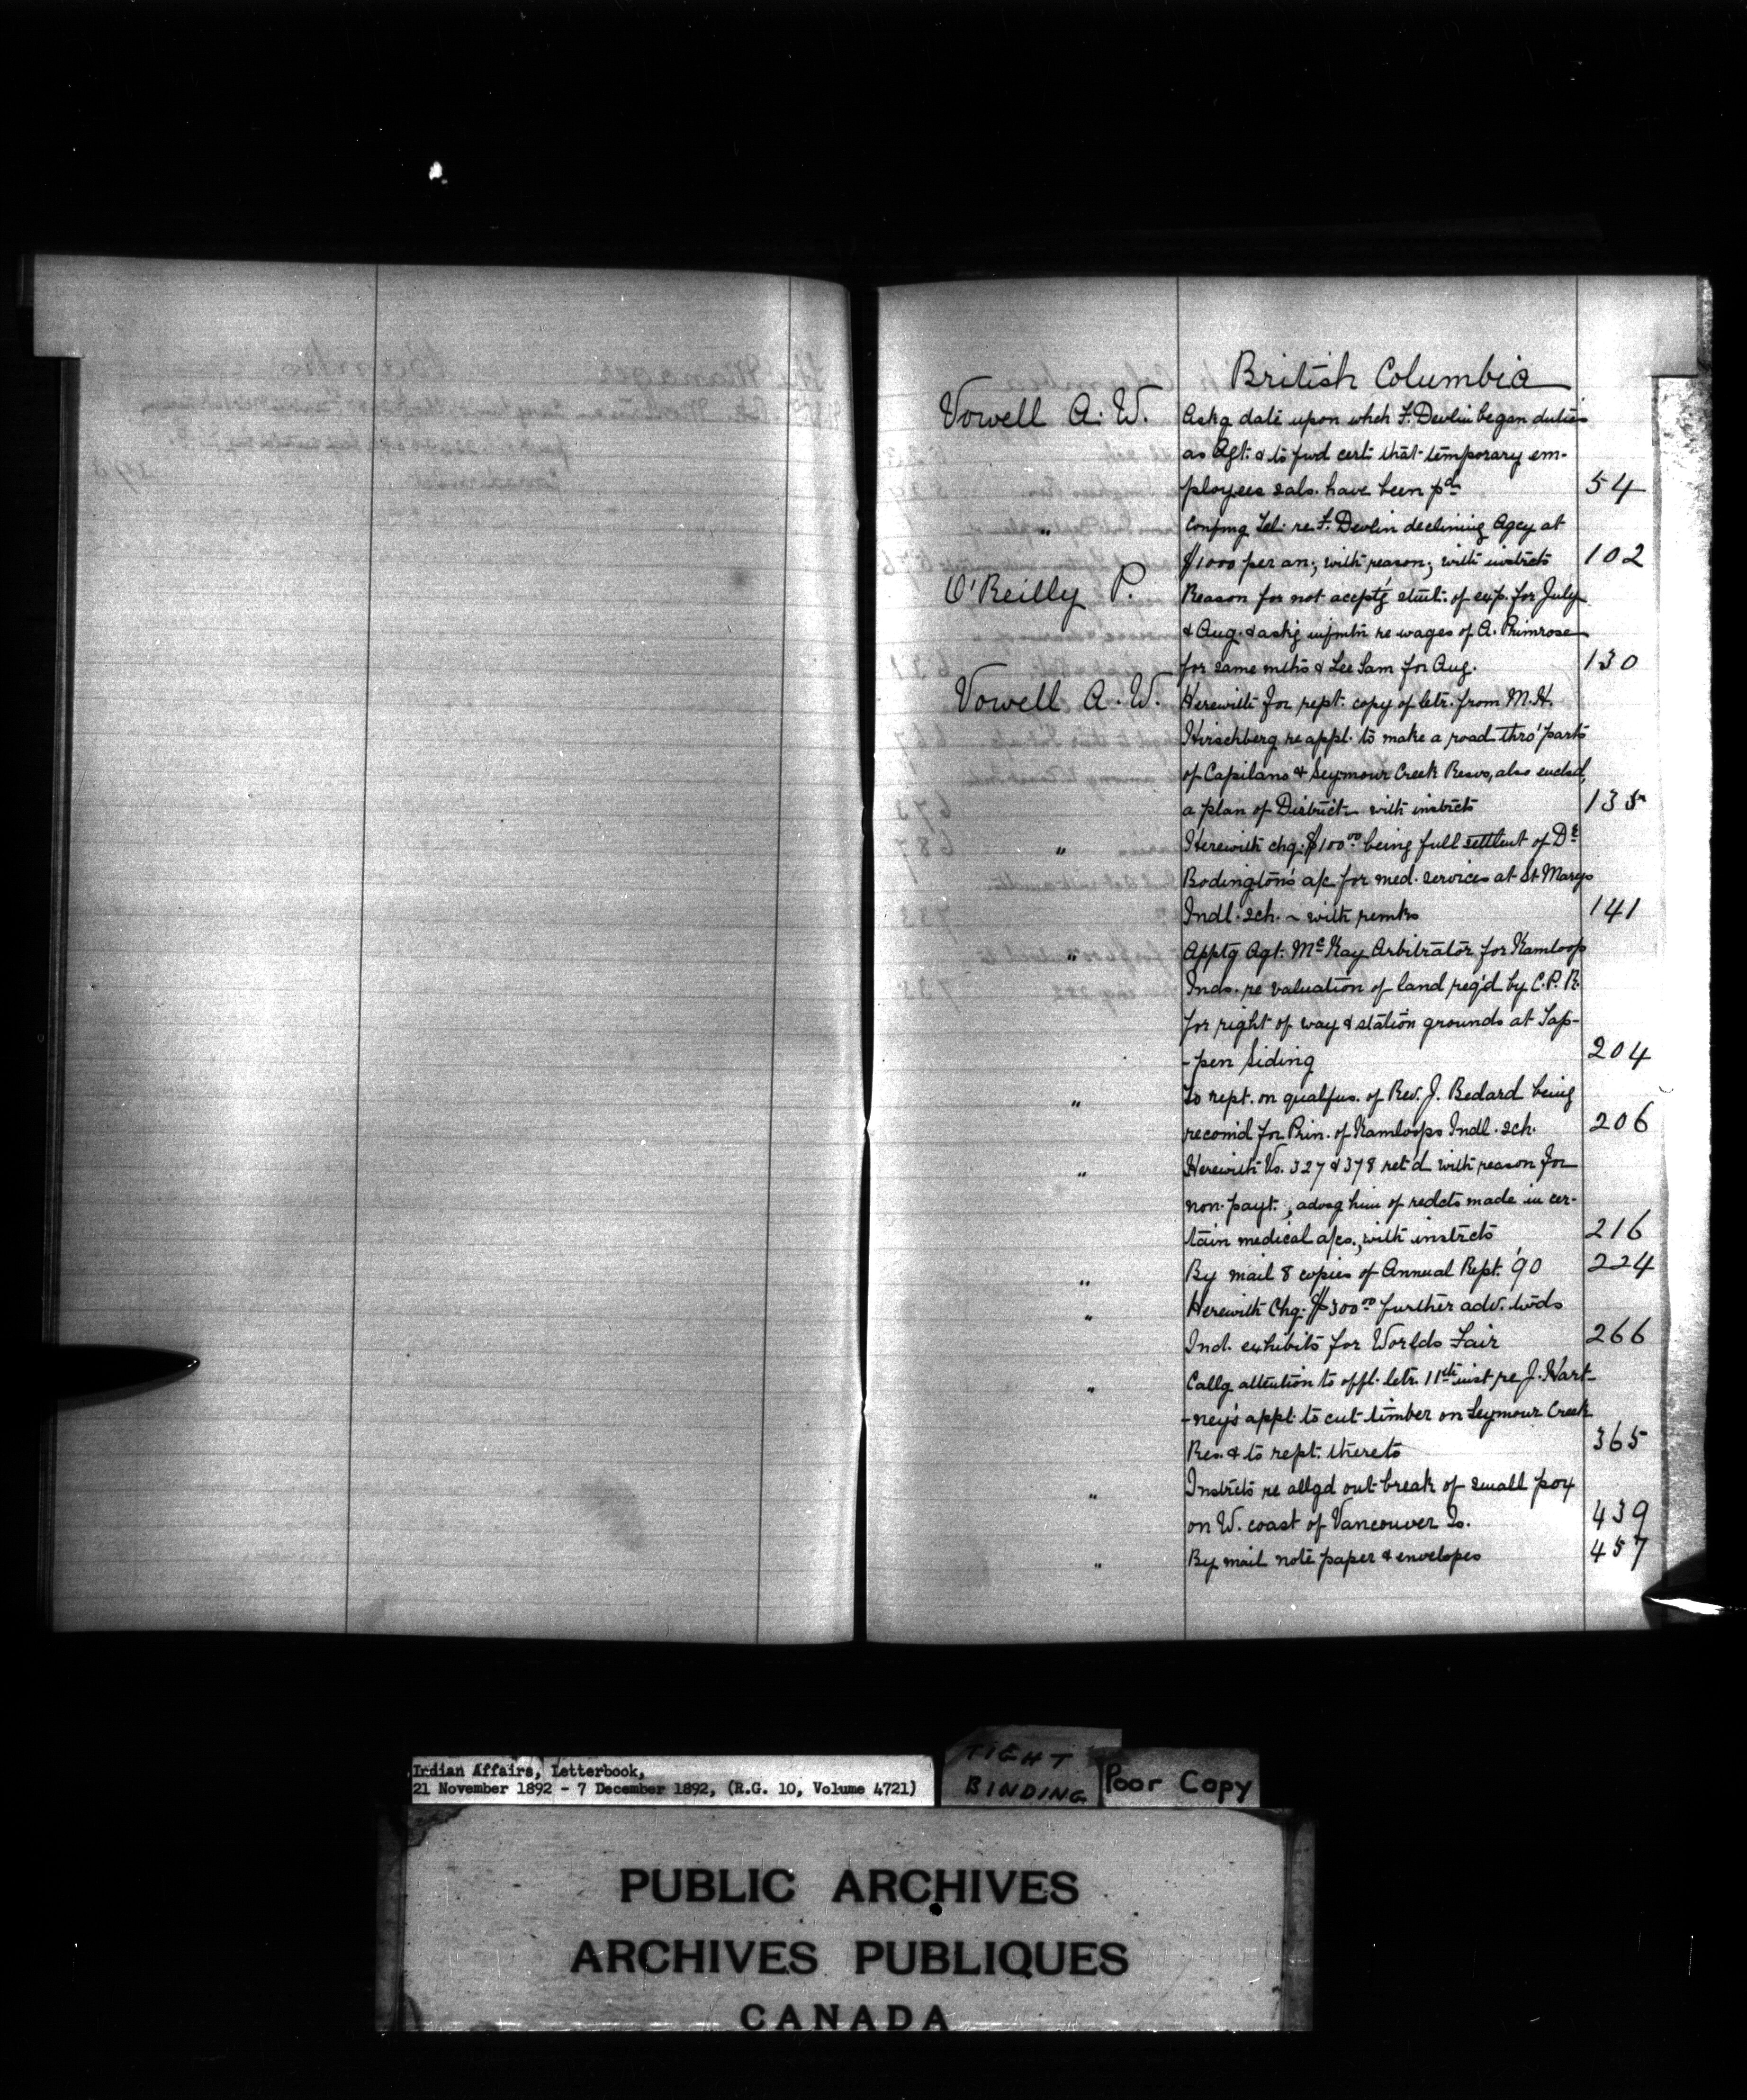 British Columbia
Vowell A. W. Askg date upon whch F. Devlin began duties
as Agt. & to fwd cert. that temporary em-
ployees sals. have been pd. 54
" Confmg Tel: re F. Devlin declining Agcy at
$1000 per an; with reason; with instrcts 102
O'Reilly P. Reason for not acceptg stmt. of exp. for July
& Aug. & askg infmtn re wages of A. Primrose
for same mths & Lee Sam for Aug. 130
Vowell A. W. Herewith for rept. copy of letr. from M. H.
Hirschberg re appl. to make a road thro' parts
of Capilano & Seymour Creek Resvs, also enclsd,
a plan of District with instrcts 135
" Herewith chq. $100.00 being full settlmt of Dr.
Bodington's a/c for med. services at St Marys
Indl. sch. ~ with remks 141
" Apptg Agt. McKay Arbitrator for Kamloop
Inds. re valuation of land req'd by C.P.R.
for right of way & station grounds at Tap-
-pen Siding 204
" To rept. on qualfns. of Rev. J. Bedard being
recom'd for Prin. of Kamloops Indl. sch. 206
" Herewith Vs. 327 & 378 ret'd with reason for
non-payt., advsg him of redcts made in cer-
tain medical a/cs., with instrcts 216
" By mail 8 copies of Annual Rept. '90 224
" Herewith Chq. $300.00 further adv. twds
Ind. exhibits for Worlds Fair 266
" Callg attention to offl. letr. 11th inst re J. Hart-
-ney's appl. to cut timber on Seymour Creek
Res. & to rept. thereto 365
" Instrcts re allgd out break of small pox
on W. coast of Vancouver Is. 439
" By mail note paper & envelopes 457
Indian Affairs, Letterbook,
21 November 1892 - 7 December 1892, (R.G. 10, Volume 4721)
TIGHT
BINDING
Poor Copy
PUBLIC ARCHIVES
ARCHIVES PUBLIQUES
CANADA